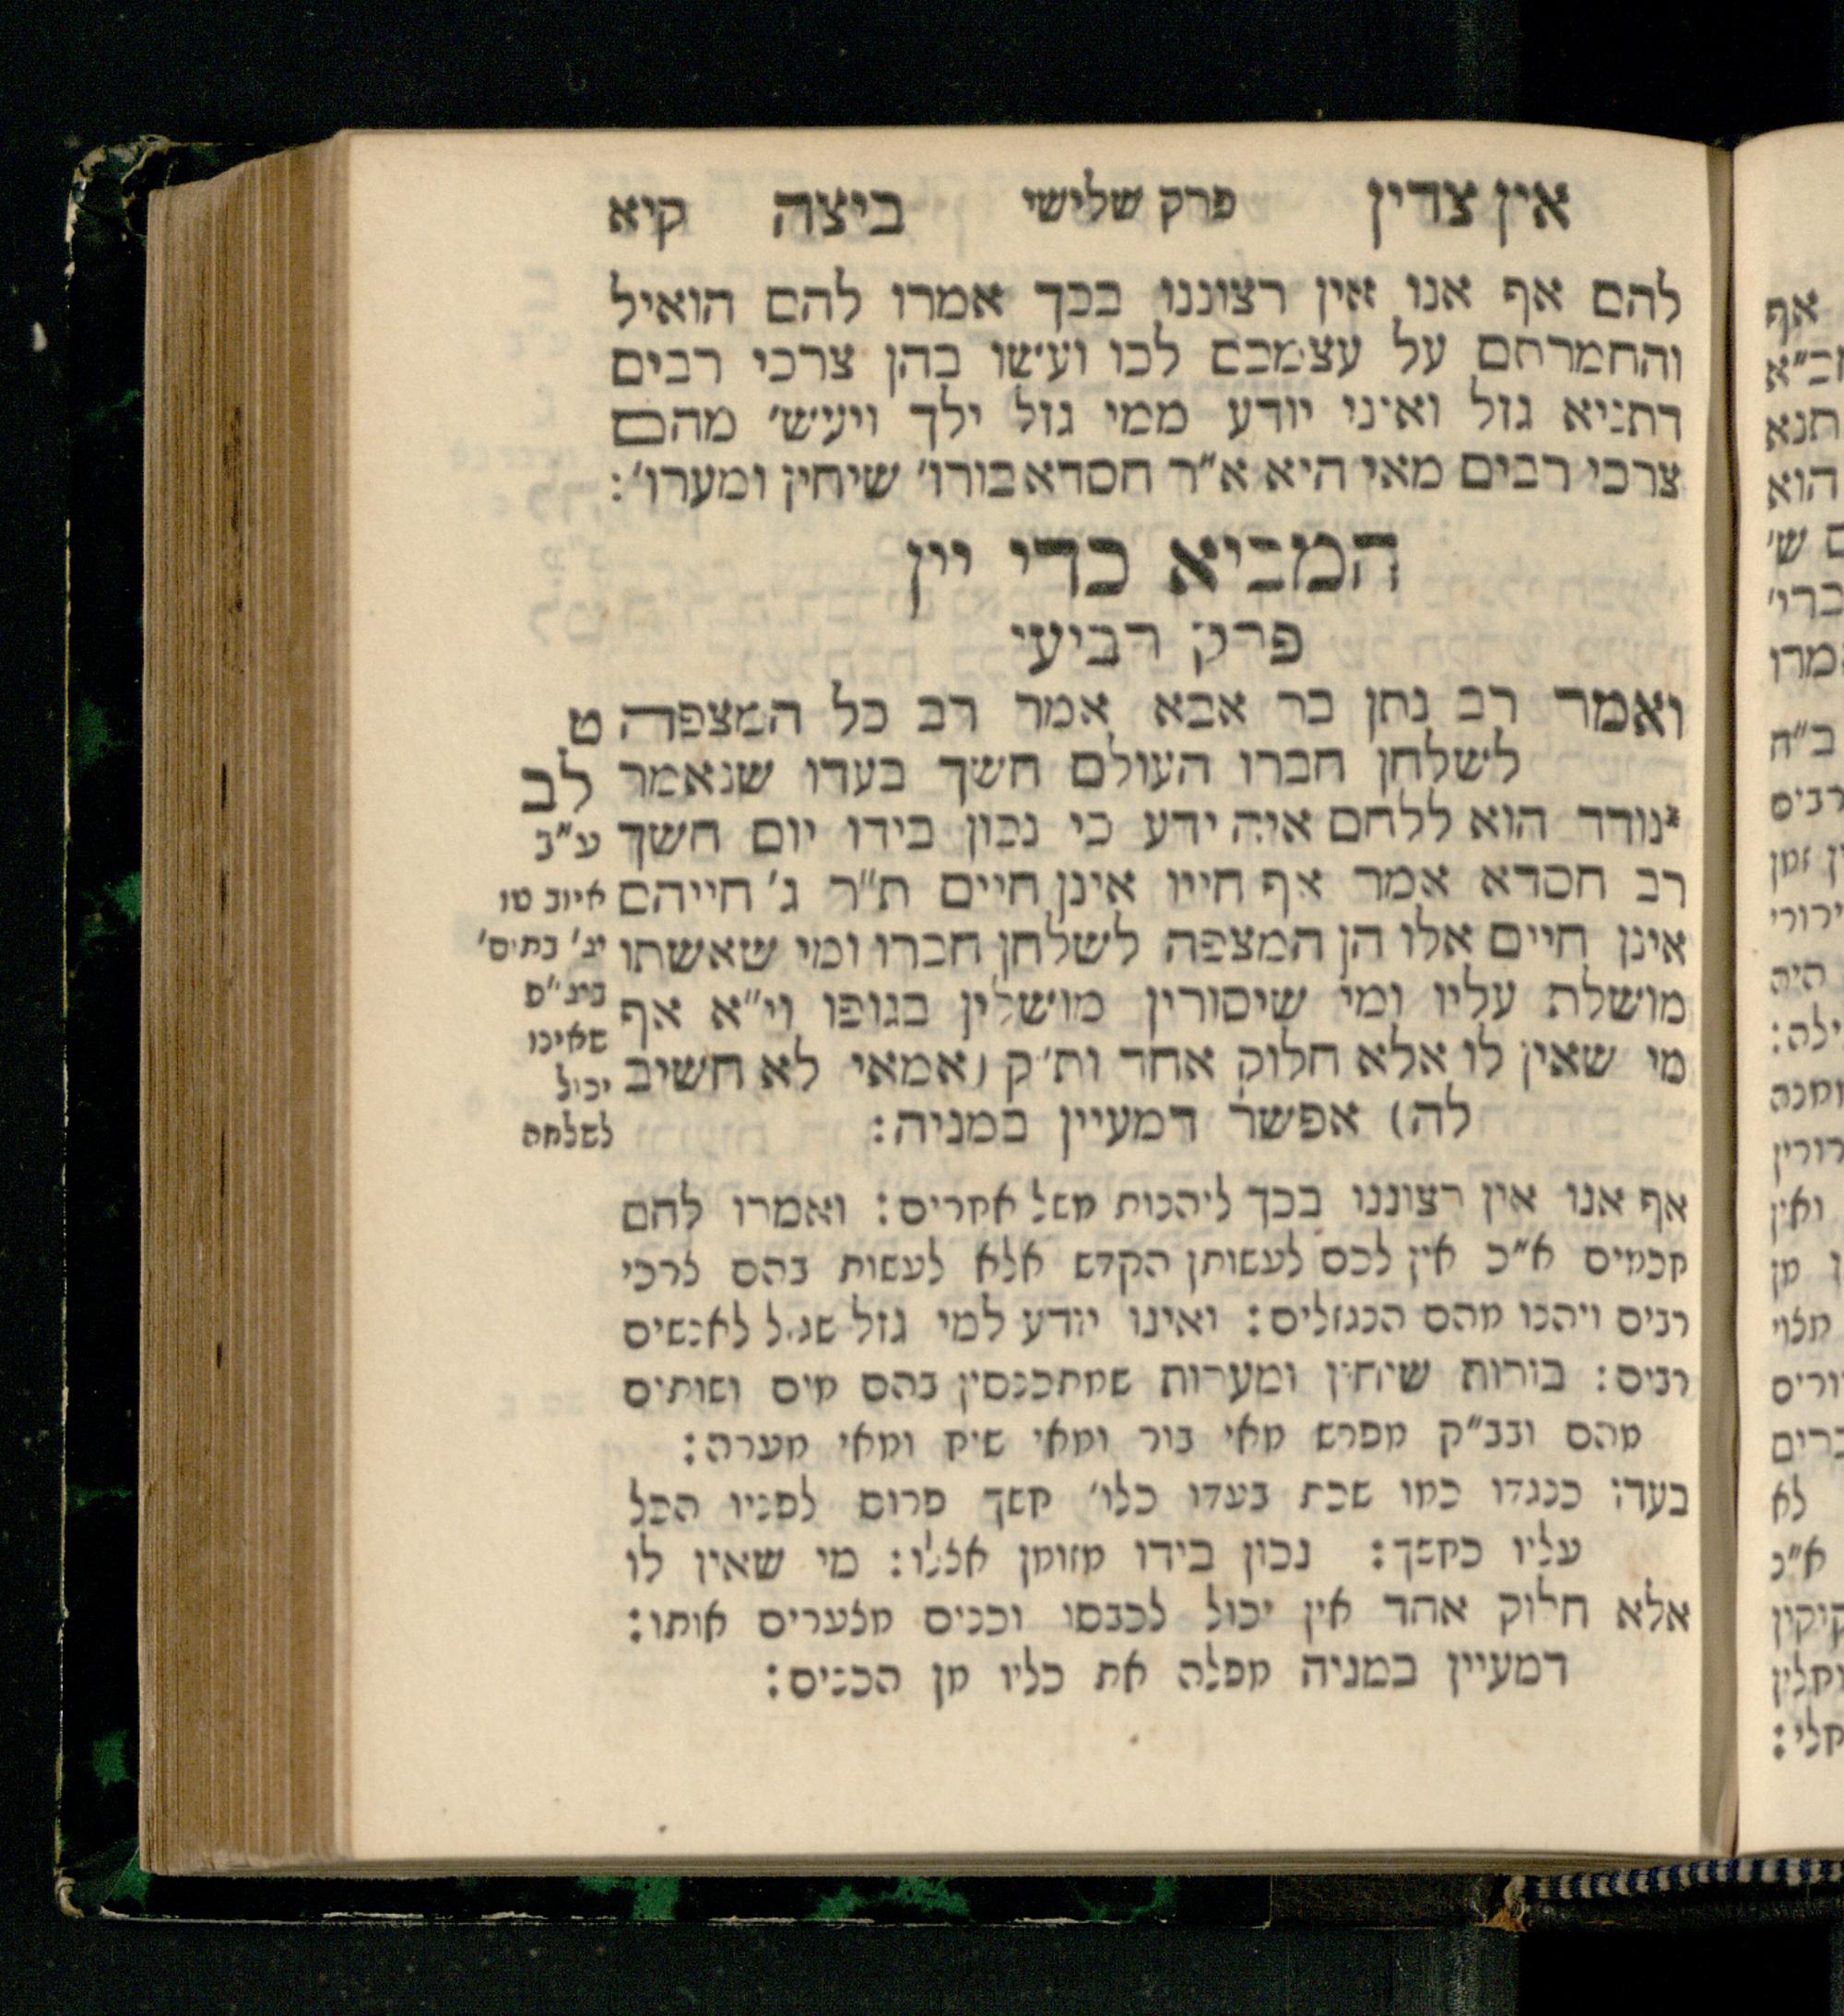 אין צדין פרק שלישי ביצה קיא
להם אף אנו אין רצוננו בכך אמרו להם הואיל
והחמרתם על עצמכם לכו ועשו בהן צרכי רבים
דתניא גזל ואיני יודע ממי גזל ילך ויעש' מהם
צרכי רבים מאי היא א"ר חסדא בורו' שיחין ומערו':
המביא כדי יין
פרק רביעי
ואמר רב נתן בר אבא אמר רב כל המצפה
לשלחן חברו העולם חשך בעדו שנאמר
נודד הוא ללחם איה ידע כי נכון בידו יום חשך
רב חסדא אמר אף חייו אינן חיים ת"ר ג' חייהם
אינן חיים אלו הן המצפה לשלחן חברו ומי שאשתו
מושלת עליו ומי שיסורין מושלין בגופו וי"א אף
מי שאין לו אלא חלוק אחד ות"ק (אמאי לא חשיב
לה) אפשר דמעיין במניה:
ט
לב
ע"ב
איוב טו
שאינו
יכול
אף אנו אין רצוננו בכך ליהנות משל אחרים: ואמרו להם
חכמים א"כ אין לכם לעשותן הקדש אלא לעשות בהם צרכי
רבים ויהנו מהם הנגזלים: ואינו יודע למי גזל שגזל לאנשים
רבים: בורות שיחין ומערות שמתכנסין בהם מים ושותים
מהם ובב"ק מפרש מאי בור ומאי שיח ומאי מערה:
בעדו כנגדו כמו שכת בעדו כלו' חשך פרוס לפניו הכל
עליו כחשך: נכון בידו מזומן אצלו: מי שאין לו
אלא חלוק אחד אין יכול לכבסו וכנים מצערים אותו:
דמעיין במניה מפלה את כליו מן הכנים: